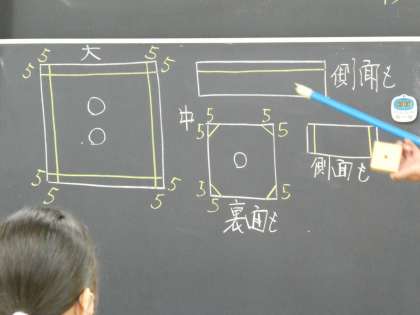 大
5 5
5 5
側面も
中
5 5
5 5
側面も
5 5
5 5
5 5
5 5
裏面も